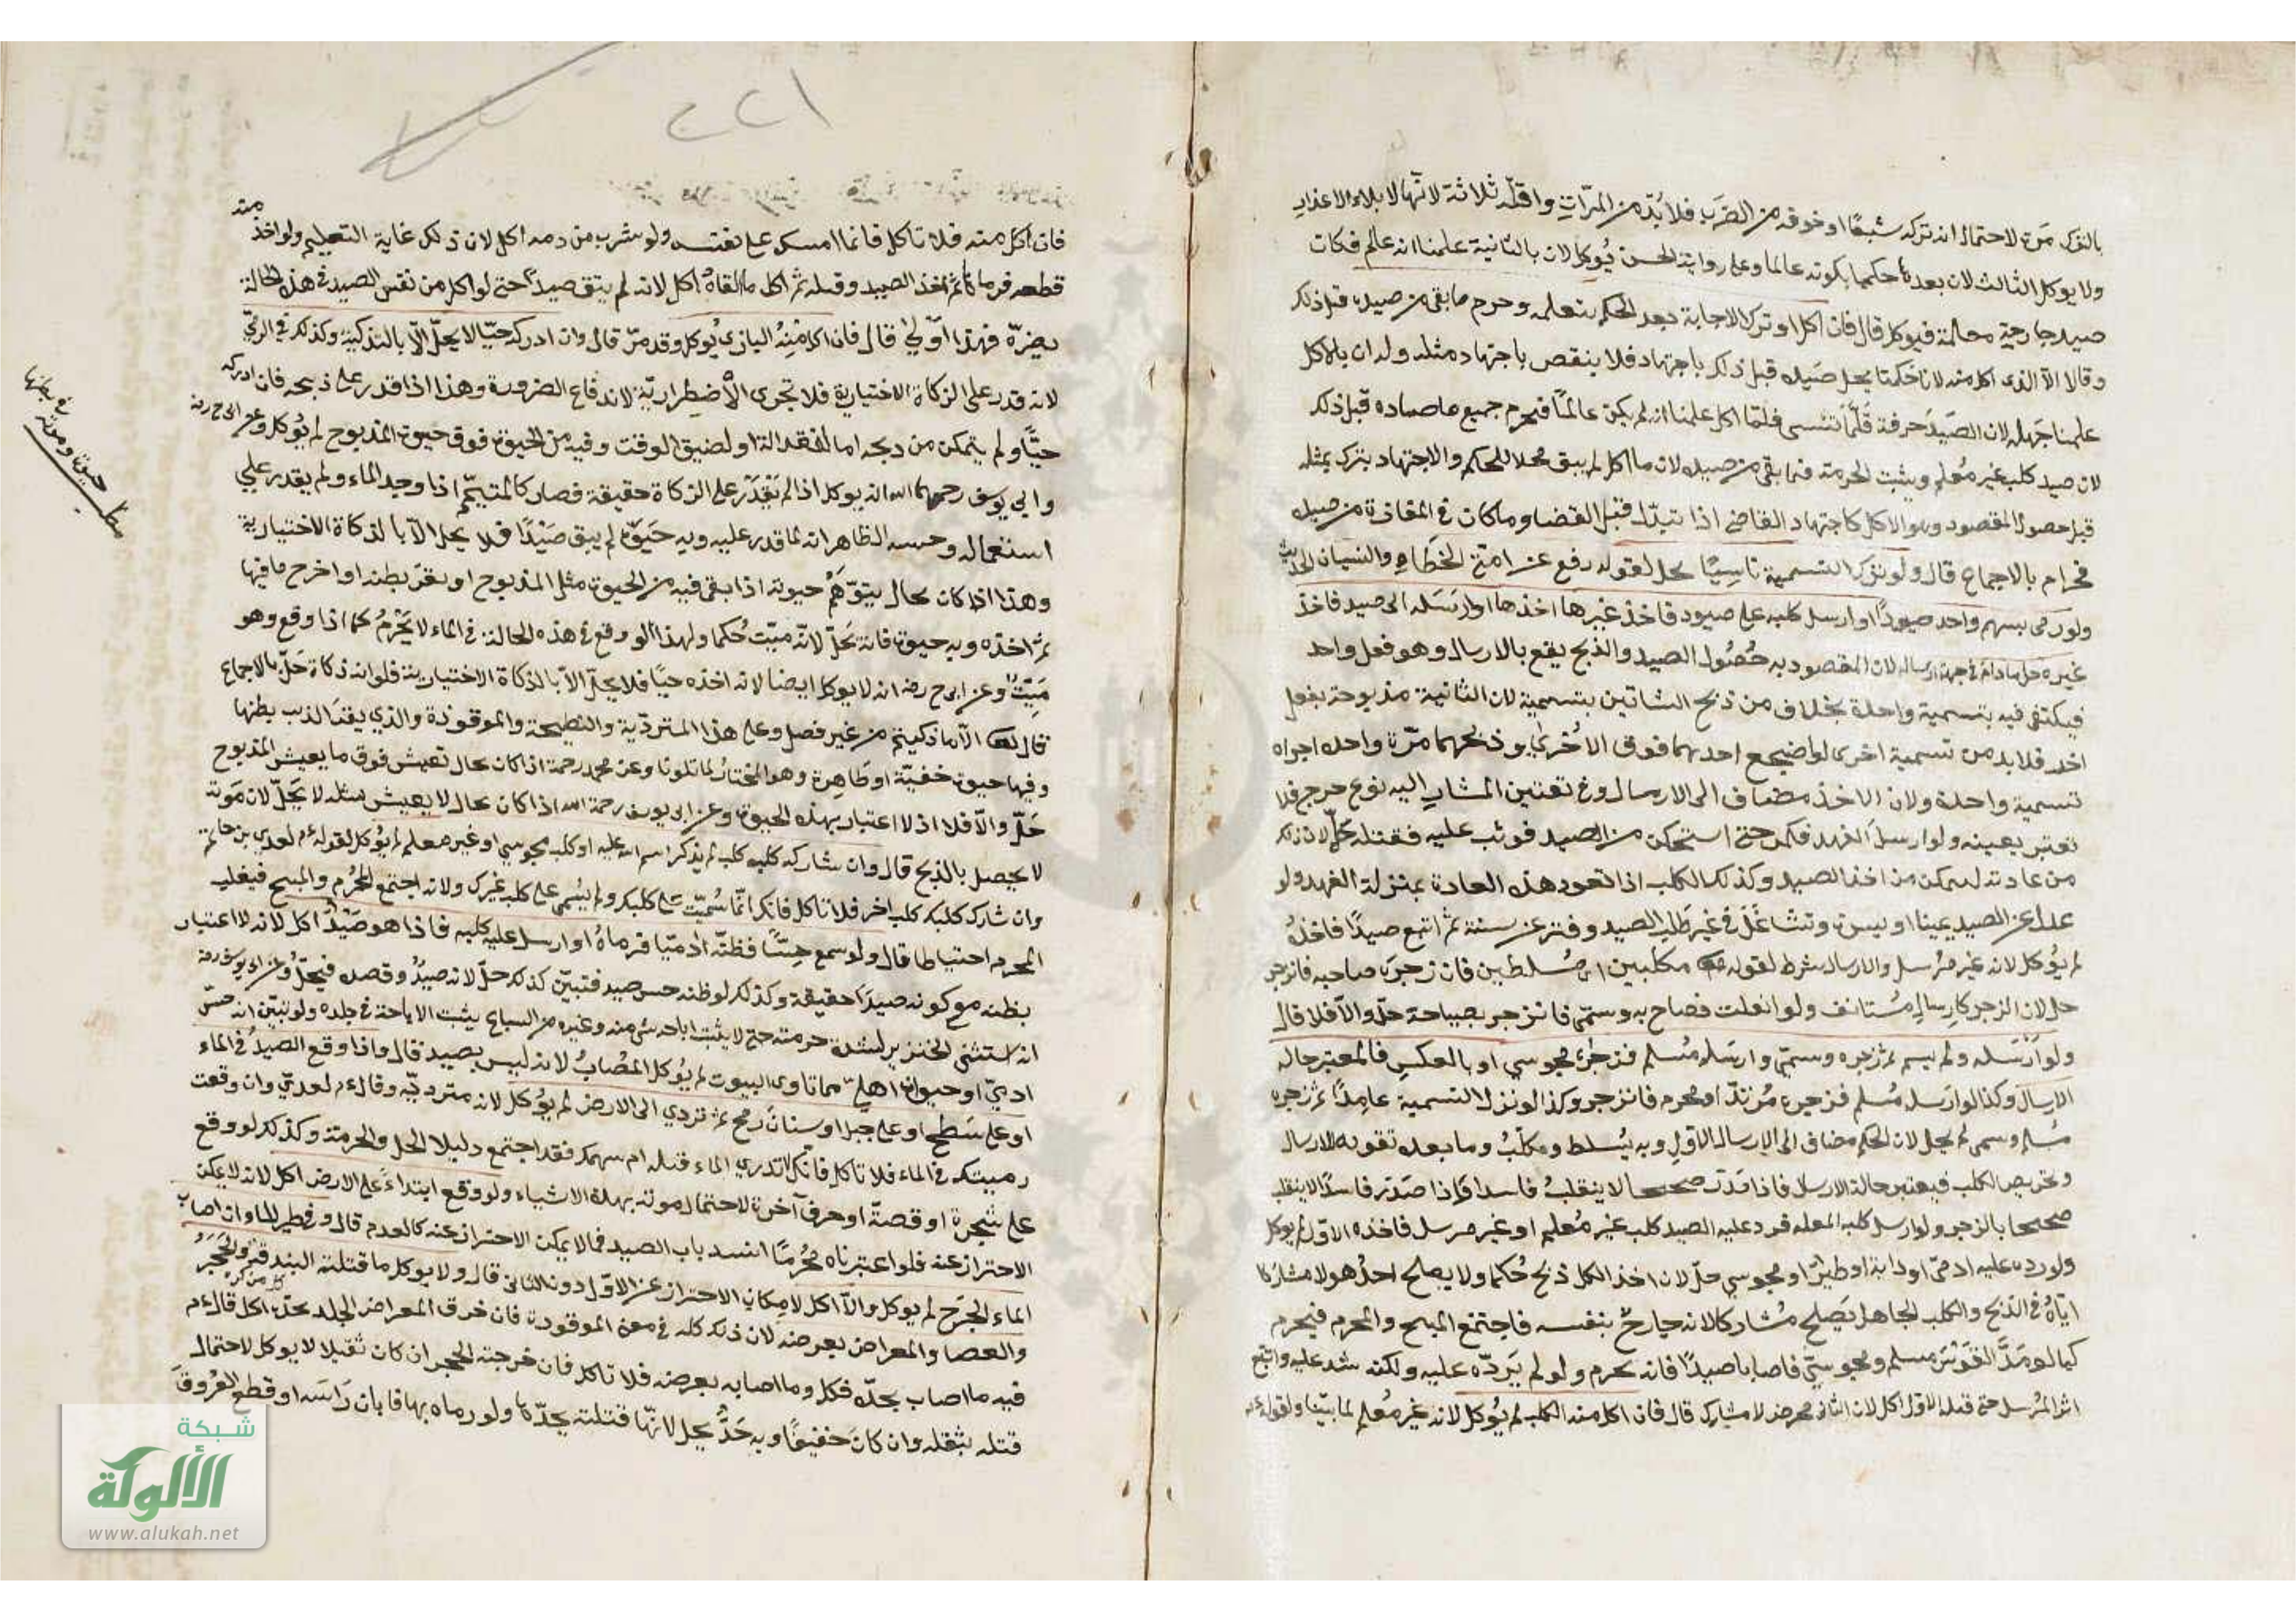 بالترك مرة لاحتمال انه تركه شبعًا او خوفه من الضرب فلا بُدّ من المرّات واقلّه ثلاثة لانّها لابلاء الاعذار
ولا يوكل الثالث لان بعده حكمنا بكونه عالما وعلى رواية الحسن يُوكل لان بالثانية علمنا انه عالم فكان
صيد جارحة معلمة فيوكل قال فان اكل او ترك الاجابة بعد الحكم بتعلمه وحرم ما بقى من صيده قبل ذلك
وقالا الا الذى اكل منه لانا حكمنا بحل صيده قبل ذلك باجتهاد فلا ينقض باجتهاد مثله وله ان بالاكل
علمنا جهله لان الصَيدَ حرفة قَلَّما تُنسى فلمّا اكل علمنا انه لم يكن عالمًا فيحرم جميع ما صاده قبل ذلك
لان صيد كلب غير مُعلم ويثبت الحرمة فيما بقى من صيده لان ما اكل لم يبق محلا للحكم والاجتهاد يترك بمثله
قبل حصول المقصود وهو الاكل كاجتهاد القاضى اذا تبدّل قبل القضا وما كان فى المفازة من صيده
فحرام بالاجماع قال ولو ترك التسمية ناسيًا يحل لقوله رفع عن امتى الخطاء والنسيان الحديث
ولو رمى بسهم واحد صيودًا او ارسل كلبه على صيود فاخذ غيرها اخذها او ارسَله الى صيد فاخذ
غيره حل ما دام فى جهة ارساله لان المقصود به حُصُول الصيد والذبح يقع بالارسال وهو فعل واحد
فيكتفى فيه بتسمية واحدة بخلاف من ذبح الشاتين بتسمية لان الثانية مذبوحة بفعل
اخر فلا بد من تسمية اخرى لو اضجع احدهما فوق الاخرى وذبحهما مرّة واحده اجزاه
تسمية واحدة ولان الاخذ مضاف الى الارسال وفى تعيين المشار اليه نوع حرج فلا
تعتبر بعينه ولو ارسل الفهد فكمن حتى استمكن من الصيد فوثب عليه فقتله حلّ لان ذلك
من عادته ليتمكن من اخذ الصيد وكذلك الكلب اذا تعود هذه العادة بمنزلة الفهد ولو
عدل عن الصيد يمينا او يسرة وتشاغَلَ فى غير طلب الصيد وفتر عن سننه ثم اتبع صيدًا فاخذهُ
لم يُؤكل لانه غير مُرسل والارسال شرط لقوله مكلبين اى مُسلطين فان زجرَه صاحبه فانزجر
حل لان الزجر كارسالٍ مُستانف ولو انفلت فصاح به وسمّى فانزجر بصياحه حلّ والاّ فلا قال
ولو ارسَله ولم يسم ثم زجره وسمّى وارسَله مُسلم فزجره مجوسي او بالعكس فالمعتبر حاله
الارسال وكذا لو ارسَله مُسلم فزجره مُرتدّ او محرم فانزجر وكذا لو ترك التسمية عامِدًا ثم زجره
مُسلم وسمى لم يحل لان الحكم مضاف الى الارسال الاول وبه يُسلط ومكلّبُ وما بعده تقوية للارسال
وتحريض الكلب فيعتبر حالة الارسال فاذا صدر صحيحا لا ينقلبُ فاسدا واذا صَدَر فاسدًا لا ينقلب
صحيحا بالزجر ولو ارسل كلبه المعلم فرد عليه الصيد كلب غير مُعلم او غير مرسل فاخذه الاوّل لم يوكل
ولو رده عليه ادمىّ او دابة او طيرًا او مجوسي حلّ لان اخذ الكل ذبح حُكما ولا يصلح احدُ هولا مشاركا
ايّاهُ فى الذبح والكلب الجاهل يَصلح مُشاركا لانه جارحٌ بنفسه فاجتمع المبيح والمحرم فيحرم
كما لو مَدَّ القَوْسَ مسلم ومجوسيّ فاصابا صيدًا فانه يحرم ولو لم يَردّه عليه ولكنه شد عليه واتبع
اثر المُرسل حتى قتله الاول اكل لان الثانى محرض لا مشارك قال فان اكل منه الكلب لم يُوكل لانه غير مُعلم لما بيّنا ولقوله عم
٢٢١
فان اكل منه فلا تاكل فانما امسك على نفسه ولو شرب من دمه اكل لان ذلك غاية التعليم ولو اخذ منه
قطعه فرماها ثم اخذ الصيد وقتله ثم اكل ما القاهُ اكل لانه لم يبق صيدًا حتى لو اكل من نفس الصيد فى هذه الحالة
يضرّه فهذا اوّلىٰ قال فان اكل مِنهُ البازى يُوكل وقد مرّ قال وان ادركه حيّا لا يحلّ الاّ بالتذكية وكذلك فى الرمىّ
لانه قدر على الزكاة الاختيارية فلا تجزى الاضطراريّة لاندفاع الضرورة وهذا اذا قدر على ذبحه فان ادركه
حيًّا ولم يتمكن من ذبحه اما لفقد الة او لضيق الوقت وفيه من الحيوة فوق حيوة المذبوح لم يُوكل وعن ابى ح رضه
وابى يوسف رحمهما الله انه يوكل اذا لم يَقدر على الزكاة حقيقة فصار كالمتيمّم اذا وجد الماء ولم يقدر على
استعماله وجه الظاهر انه لما قدر عليه وبه حَيَوةٌ لم يبق صَيْدًا فلا يحل الاّ بالذكاة الاختيارية
وهذا اذا كان بحال يتوّهمُ حيوته اذا بقى فيه من الحيوة مثل المذبوح او بقرَ بطنه او اخرج ما فيها
ثم اخذه وبه حيوة فانه يَحلّ لانّه ميّت حُكما ولهذا لو وقع فى هذه الحالة فى الماء لا يَحْرُمُ كما اذا وقع وهو
مَيّتٌ وعن ابى ح رضه انه لا يوكل ايضا لانه اخذه حيّا فلا يحلّ الاّ بالذكاة الاختيارية فلو انه ذكاة حَلّ بالاجماع
قال الاّ ما ذكيتم من غير فصل وعلى هذا المتردّية والنطيحة والموقوذة والذي يبقر الذيب بطنها
وفيها حيوة خفيّة او ظاهِرة وهو المختارُ لما تلونا وعن محمد رحمة اذا كان بحال تعيش فوق ما يعيش المذبوح
حَلّ والاّ فلا اذ لا اعتبار بهذه الحيوة وعن ابى يوسف رحمة الله اذا كان بحال لا يعيش مثله لا يَحلّ لان مَوته
لا يحصل بالذبح قال وان شاركه كلبه كلب لم يذكر اسم الله عليه او كلب مجوسي او غير معلم لم يُوكل لقوله عم لعدى بن حاتم
وان شارك كلبك كلب اخر فلا تاكل فانك انّما سُمّيت على كلبك ولم تُسمى على كلب غيرك ولانه اجتمع المحرُم والمبيح فيغلب
المحرم احتياطا قال ولو سمع حِسًّا فظنّه ادميّا فرماهُ او ارسل عليه كلبه فاذا هو صَيْدٌ اكل لانه لا اعتبار
بظنه مع كونه صيدًا حقيقة وكذلك لو ظنه حس صيد فتبيّن كذلك حلّ لانه صيدٌ وقصد فيحلّ وعن ابى يوسف رضه
انه استثنى الخنزير لشدة حرمته حتى لا يثبت اباحة شى منه وغيره من السباع يثبت الاباحة فى جلده ولو تبيّن انه حسّ
ادمىّ او حيوانٍ اهلىّ مما تاوى البيوت لم يُوكل المُصابُ لانه ليس بصيد قال واذا وقع الصيدُ فى الماء
او على سَطح او على جبل او سنان رمح ثم تردي الى الارض لم يُؤكل لانه متردّيه وقال عم لعدىّ وان وقعت
رميتك فى الماء فلا تاكل فانّك لا تدري الماء قتله ام سهمك فقد اجتمع دليلا الحل والحرمة وكذلك لو وقع
على شجرة او قصبة او حرف آخره لاحتمال موته بهذه الاشياء ولو وقع ابتداءً على الارض اكل لانه لا يمكن
الاحتراز عنه فلو اعتبرناه محرمًا انسد باب الصيد فما لا يمكن الاحتراز عنه كالعدم قال وفى طير الماء ان اصاب
الماء الجَرَح لم يوكل والاّ اكل لامِكان الاحتراز عن الاوّل دون الثانى قال ولا يوكل ما قتلته البندقة والحَجَرُ
والعصا والمعراض بعرضه لان ذلك كله فى معنى الموقوذة فان خرق المعراض الجلد بحدّه اكل قال عم
فيه ما اصاب بحدّه فكل وما اصابه بعرضه فلا تاكل فان جرحته الحجر ان كان ثقيلا لا يوكل لاحتمال
قتله بثقله وان كان خفيفًا وبه حَدٌّ يحل لانّها قتلته بحدّها ولو رماه بها فابان رَاسَه او قطع العُرُوق
حيوة وموته
شبكة
الألوكة
www.alukah.net